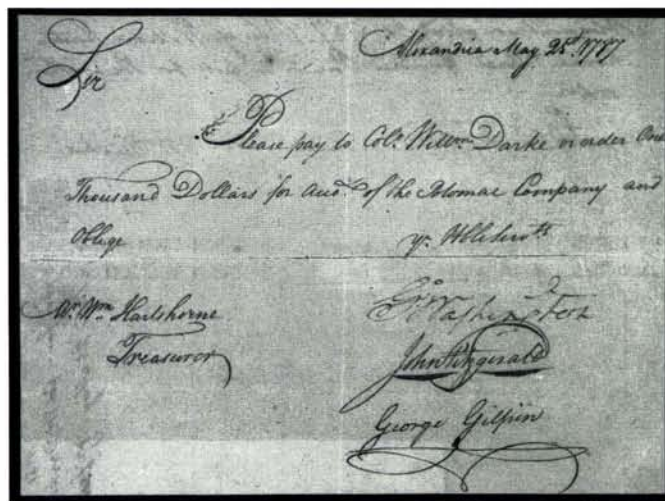 Alexandria May 25th. 1787
Sir
Please pay to Colo. Willm. Darke or order One
Thousand Dollars for Acct. of the Potomac Company and
Oblige yr. Hble Servts
Mr. Wm. Hartshorne
Treasurer
Go: Washington
John Fitzgerald
George Gilpin